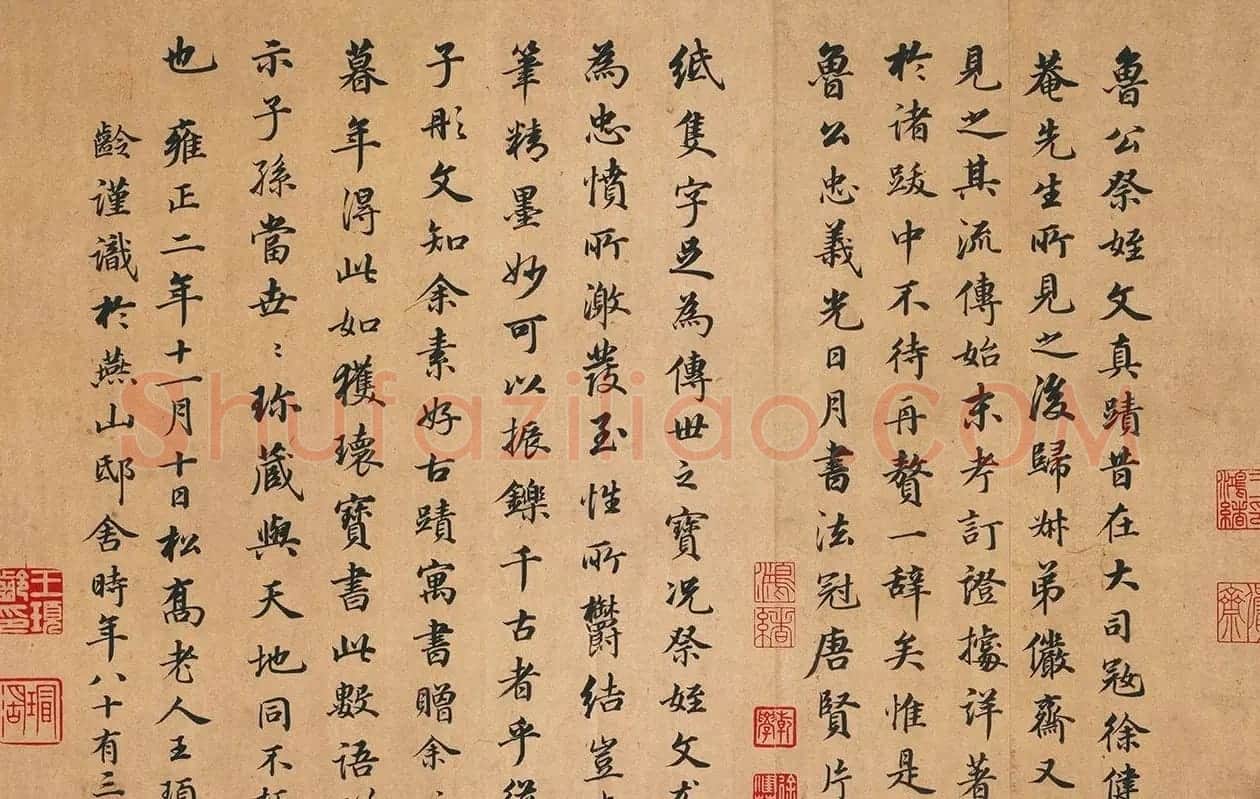 魯公祭姪文真蹟昔在大司寇徐健
菴先生所見之後歸叔弟儼齋又
見之其流傳始末考訂證據詳著
於諸跋中不待再贅一辞矣惟是
魯公忠義光日月書法冠唐賢片
紙隻字足為傳世之寶况祭姪文尤
為忠憤所激發至性所鬱結豈
筆精墨妙可以振鑠千古者乎
子彤文知余素好古蹟寓書贈余
暮年得此如獲瓌寶書此數語
示子孫當世〻珎藏與天地同不
也 雍正二年十一月十日松髙老人王頊
齡謹識於燕山邸舍時年八十有三
Shufaziliao.COM
鴻緒